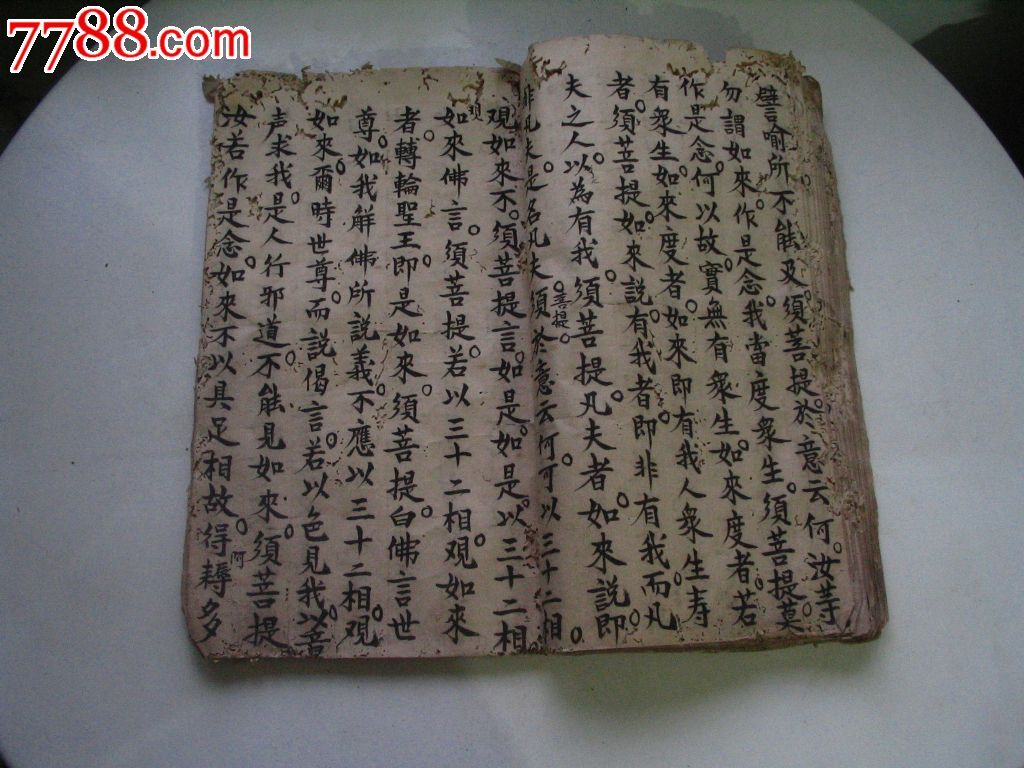 7788.com
譬喻所不能及。須菩提。於意云何。汝等
勿謂如來。作是念。我當度眾生。須菩提莫
作是念。何以故。實無有眾生。如來度者。若
有眾生。如來度者。如來即有我人眾生寿
者。須菩提。如來說有我者。即非有我。而凡
夫之人。以為有我。須菩提。凡夫者。如來說即
非凡夫。是名凡夫。須菩提。於意云何。可以三十二相。
觀如來不。須菩提言。如是。如是。以三十二相
观如來。佛言。須菩提。若以三十二相。觀如來
者。轉輪聖王。即是如來。須菩提。白佛言。世
尊。如我解佛所說義。不應以三十二相。觀
如來。爾時世尊。而說偈言。若以色見我。以音
声求我。是人行邪道。不能見如來。須菩提
汝若作是念。如來不以具足相故。得阿耨多